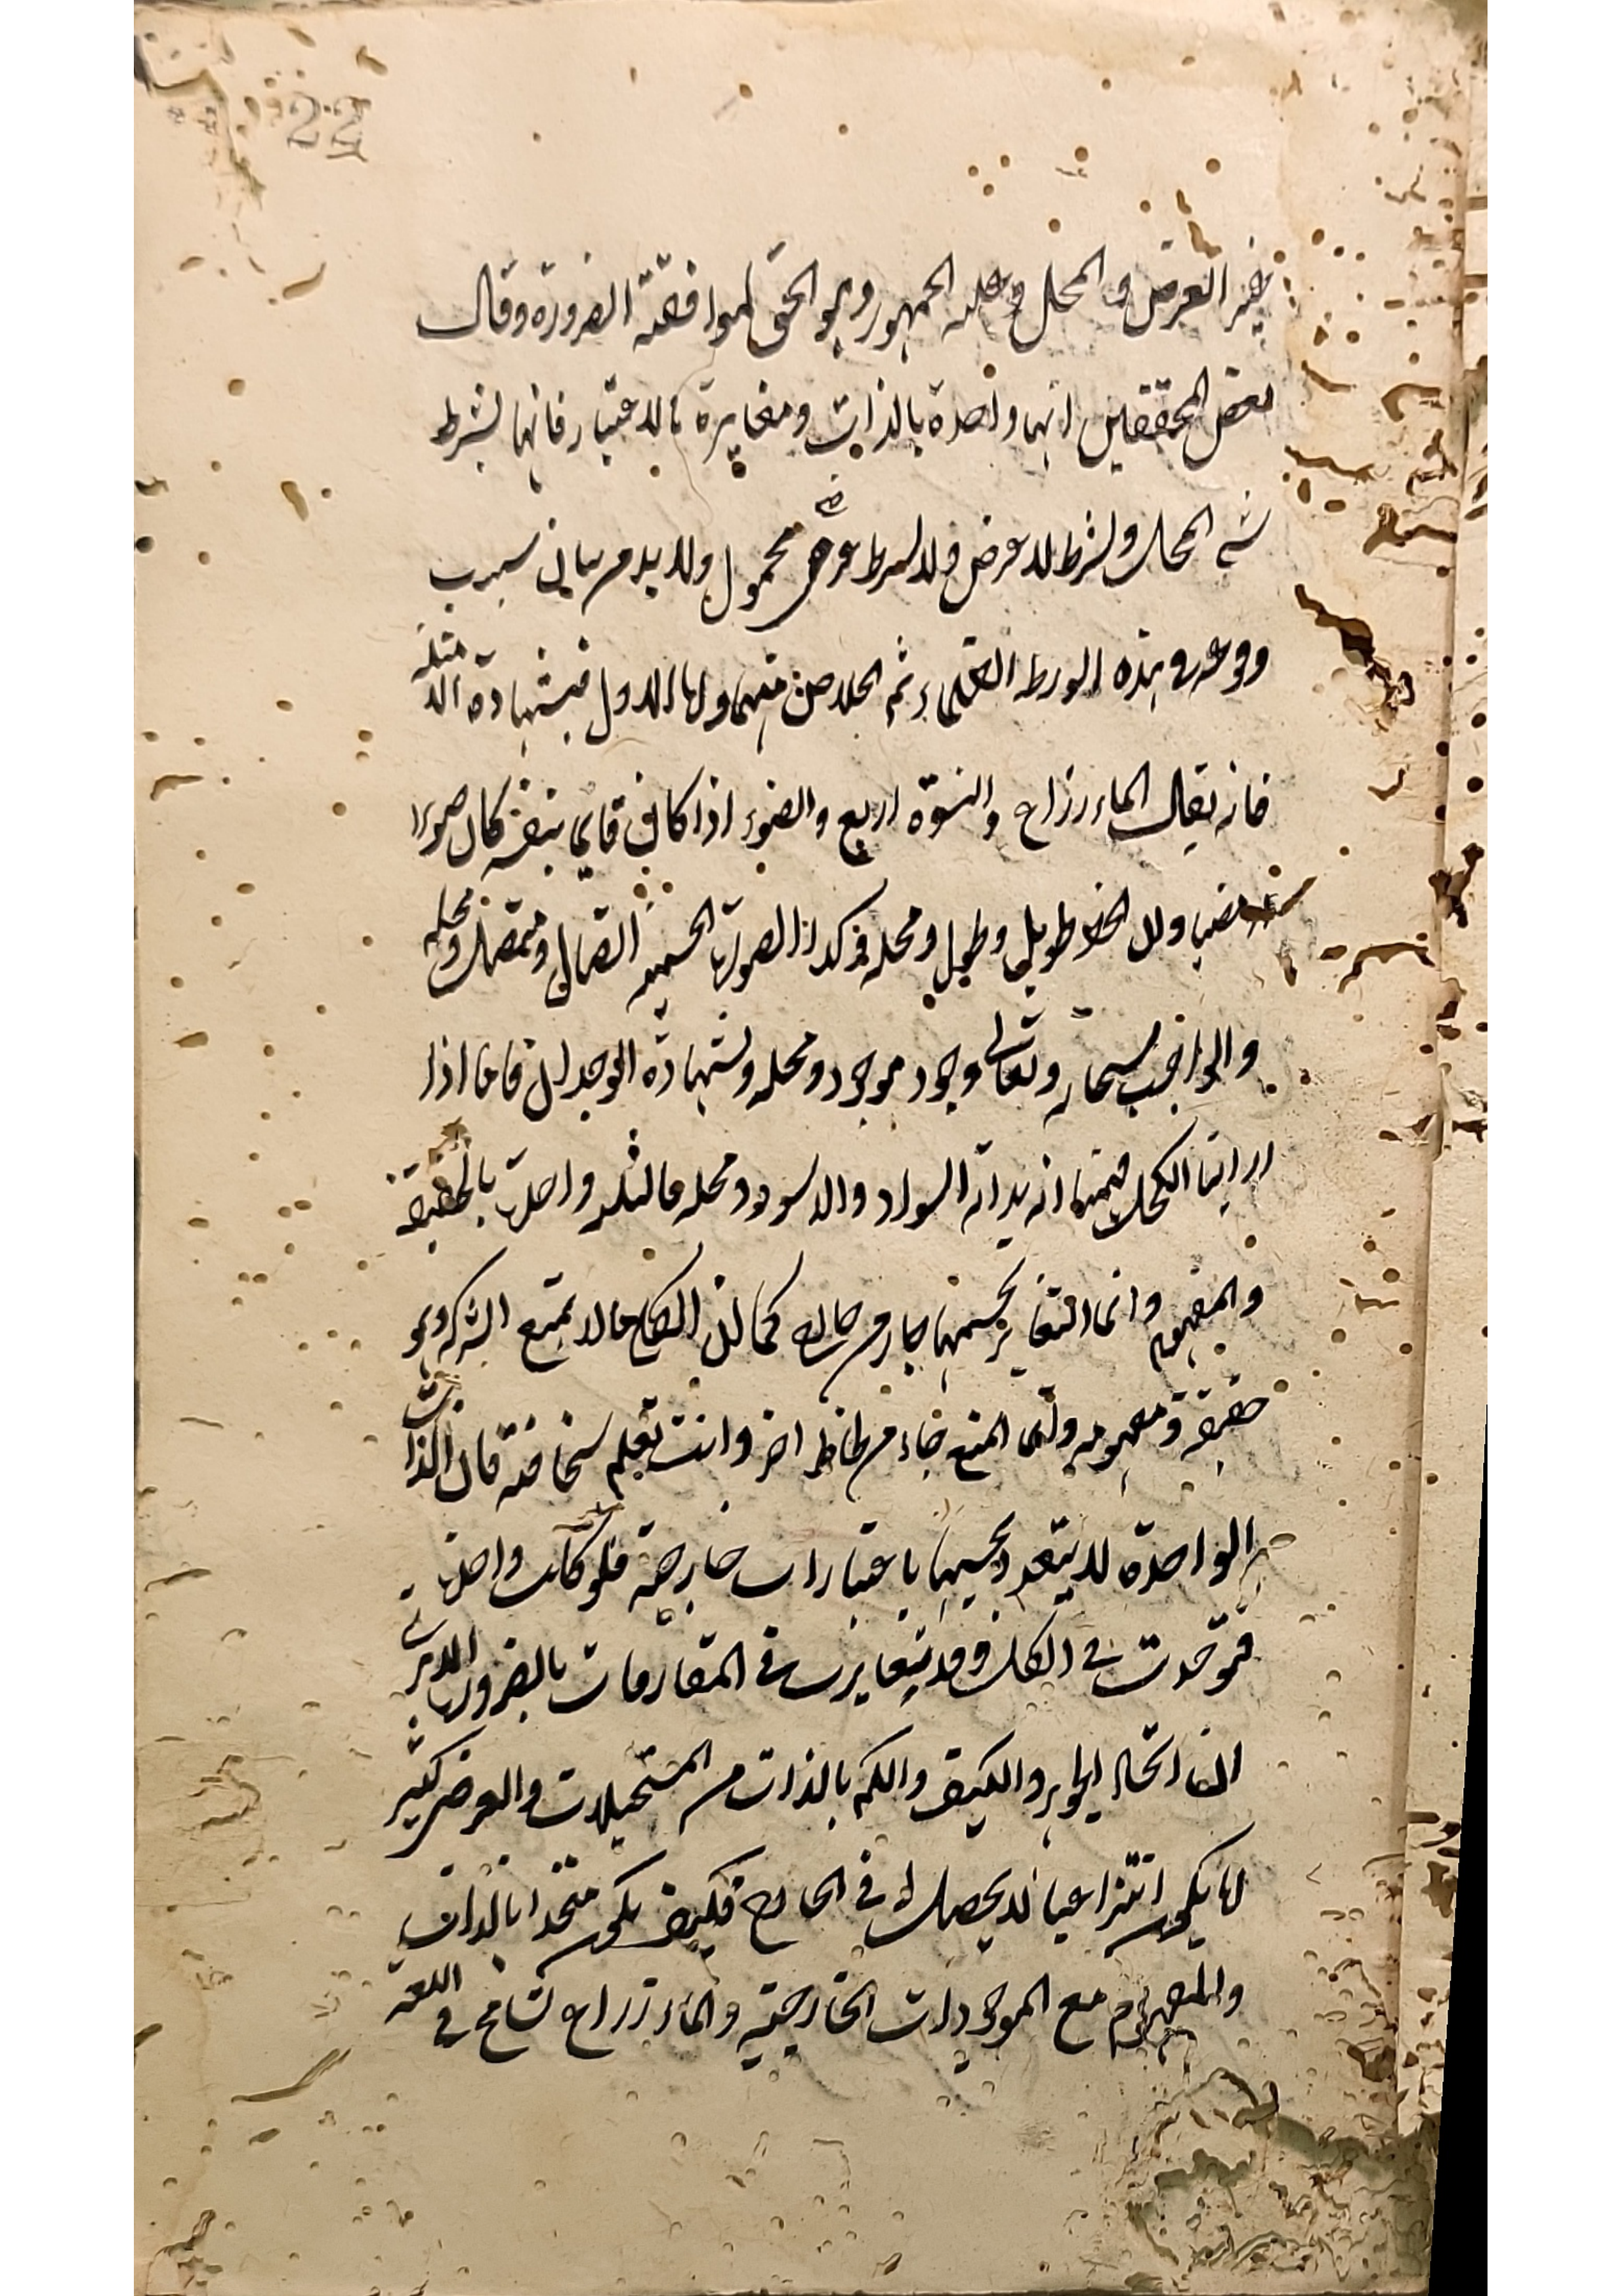 22
غير العرض والمحل وعليه الجمهور وهو الحق لموافقته الضرورة وقال
بعض المحققين انها واحدة بالذات ومغايرة بالاعتبار فانها بشرط
شيء المحل وبشرط لا عرض ولا بشرط عرضي محمول ولا بد من بيان سبب
وقوعه في هذه الورطة الظلماء ثم الخلاص منها اما الاول فبشهادة الامثلة
فانه يقال الماء ذراع والنسوة اربع والضوء اذا كان قائما بنفسه كان ضوءا
مضيئا ولان الخط طويل وطول ومحله وكذا الصورة الجسمية اتصال ومتصل ومحله
والواجب سبحانه وتعالى وجود موجود ومحله وبشهادة الوجدان فانا اذا
راينا الكحل فهمنا انه بذاته السواد والاسود ومحله فالثلاثة واحدة بالحقيقة
والمفهوم وانما التغاير بحسبها جاء من خارج كما ان الكلي ما لا يمتنع الشركة وهو
حقيقة ومفهومه وانما المنع جاء من لحاظ اخر وانت تعلم سخافته فان الذات
الواحدة لا يتعدد بحسبها باعتبارات خارجة فلو كانت واحدة
توحدت في الكل وقد يتغايرت في المقارنات بالضرورة الا ترى
ان اتحاد الجوهر والكيف والكم بالذات من المستحيلات والعرض كثير
ما يكون انتزاعيا لا يحصل له في الخارج فكيف يكون متحدا بالذات
والمفهوم مع الموجودات الخارجية والماء ذراع تسامح في اللغة